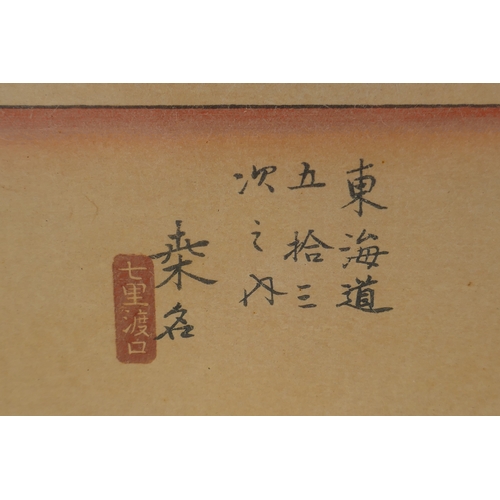 東海道
五拾三
次之内
桑名
七里渡口